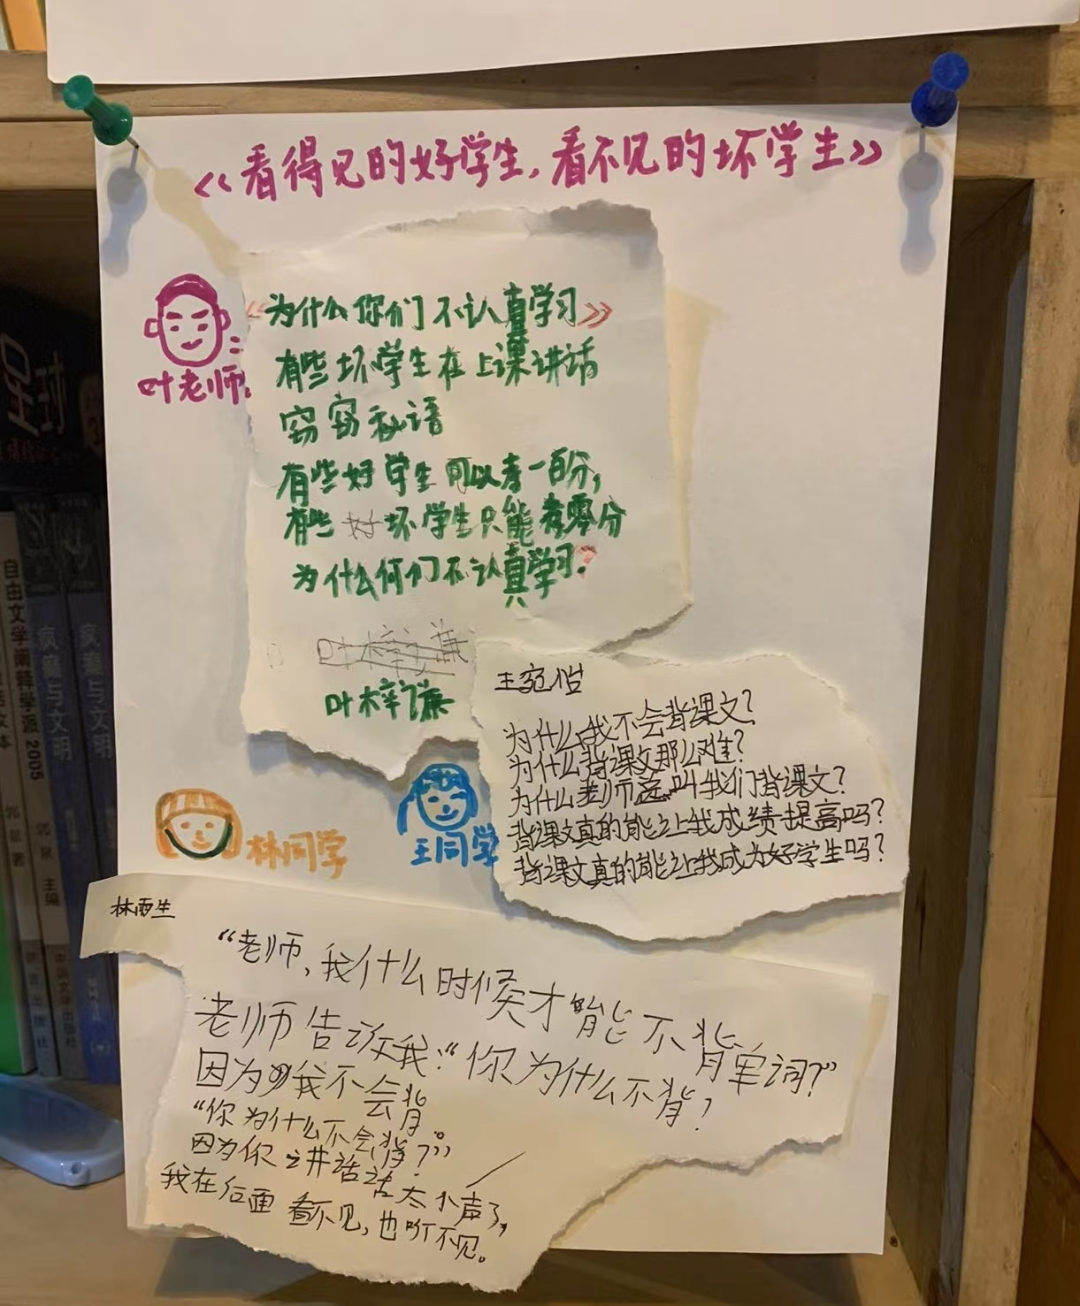 《看得见的好学生，看不见的坏学生》
叶老师:
《为什么你们不认真学习》
有些坏学生在上课讲话
窃窃私语
有些好学生可以考一百分，
有些好坏学生只能考零分
为什么你们不认真学习？
叶梓谦
叶梓谦
王宛恺
为什么我不会背课文？
为什么背课文那么难？
为什么老师选叫我们背课文？
背课文真的能让我成绩提高吗？
背课文真的能让我成为好学生吗？
林同学
王同学
林雨生
“老师，我什么时候才能不背单词？”
老师告诉我：“你为什么不背？
因为我不会背
“你为什么不会背？”
因为你讲话话太小声了，
我在后面看不见，也听不见。
自由文学阐释学派2005
郭泉 著
疯癫与文明
疯癫与文明
郭泉 主编